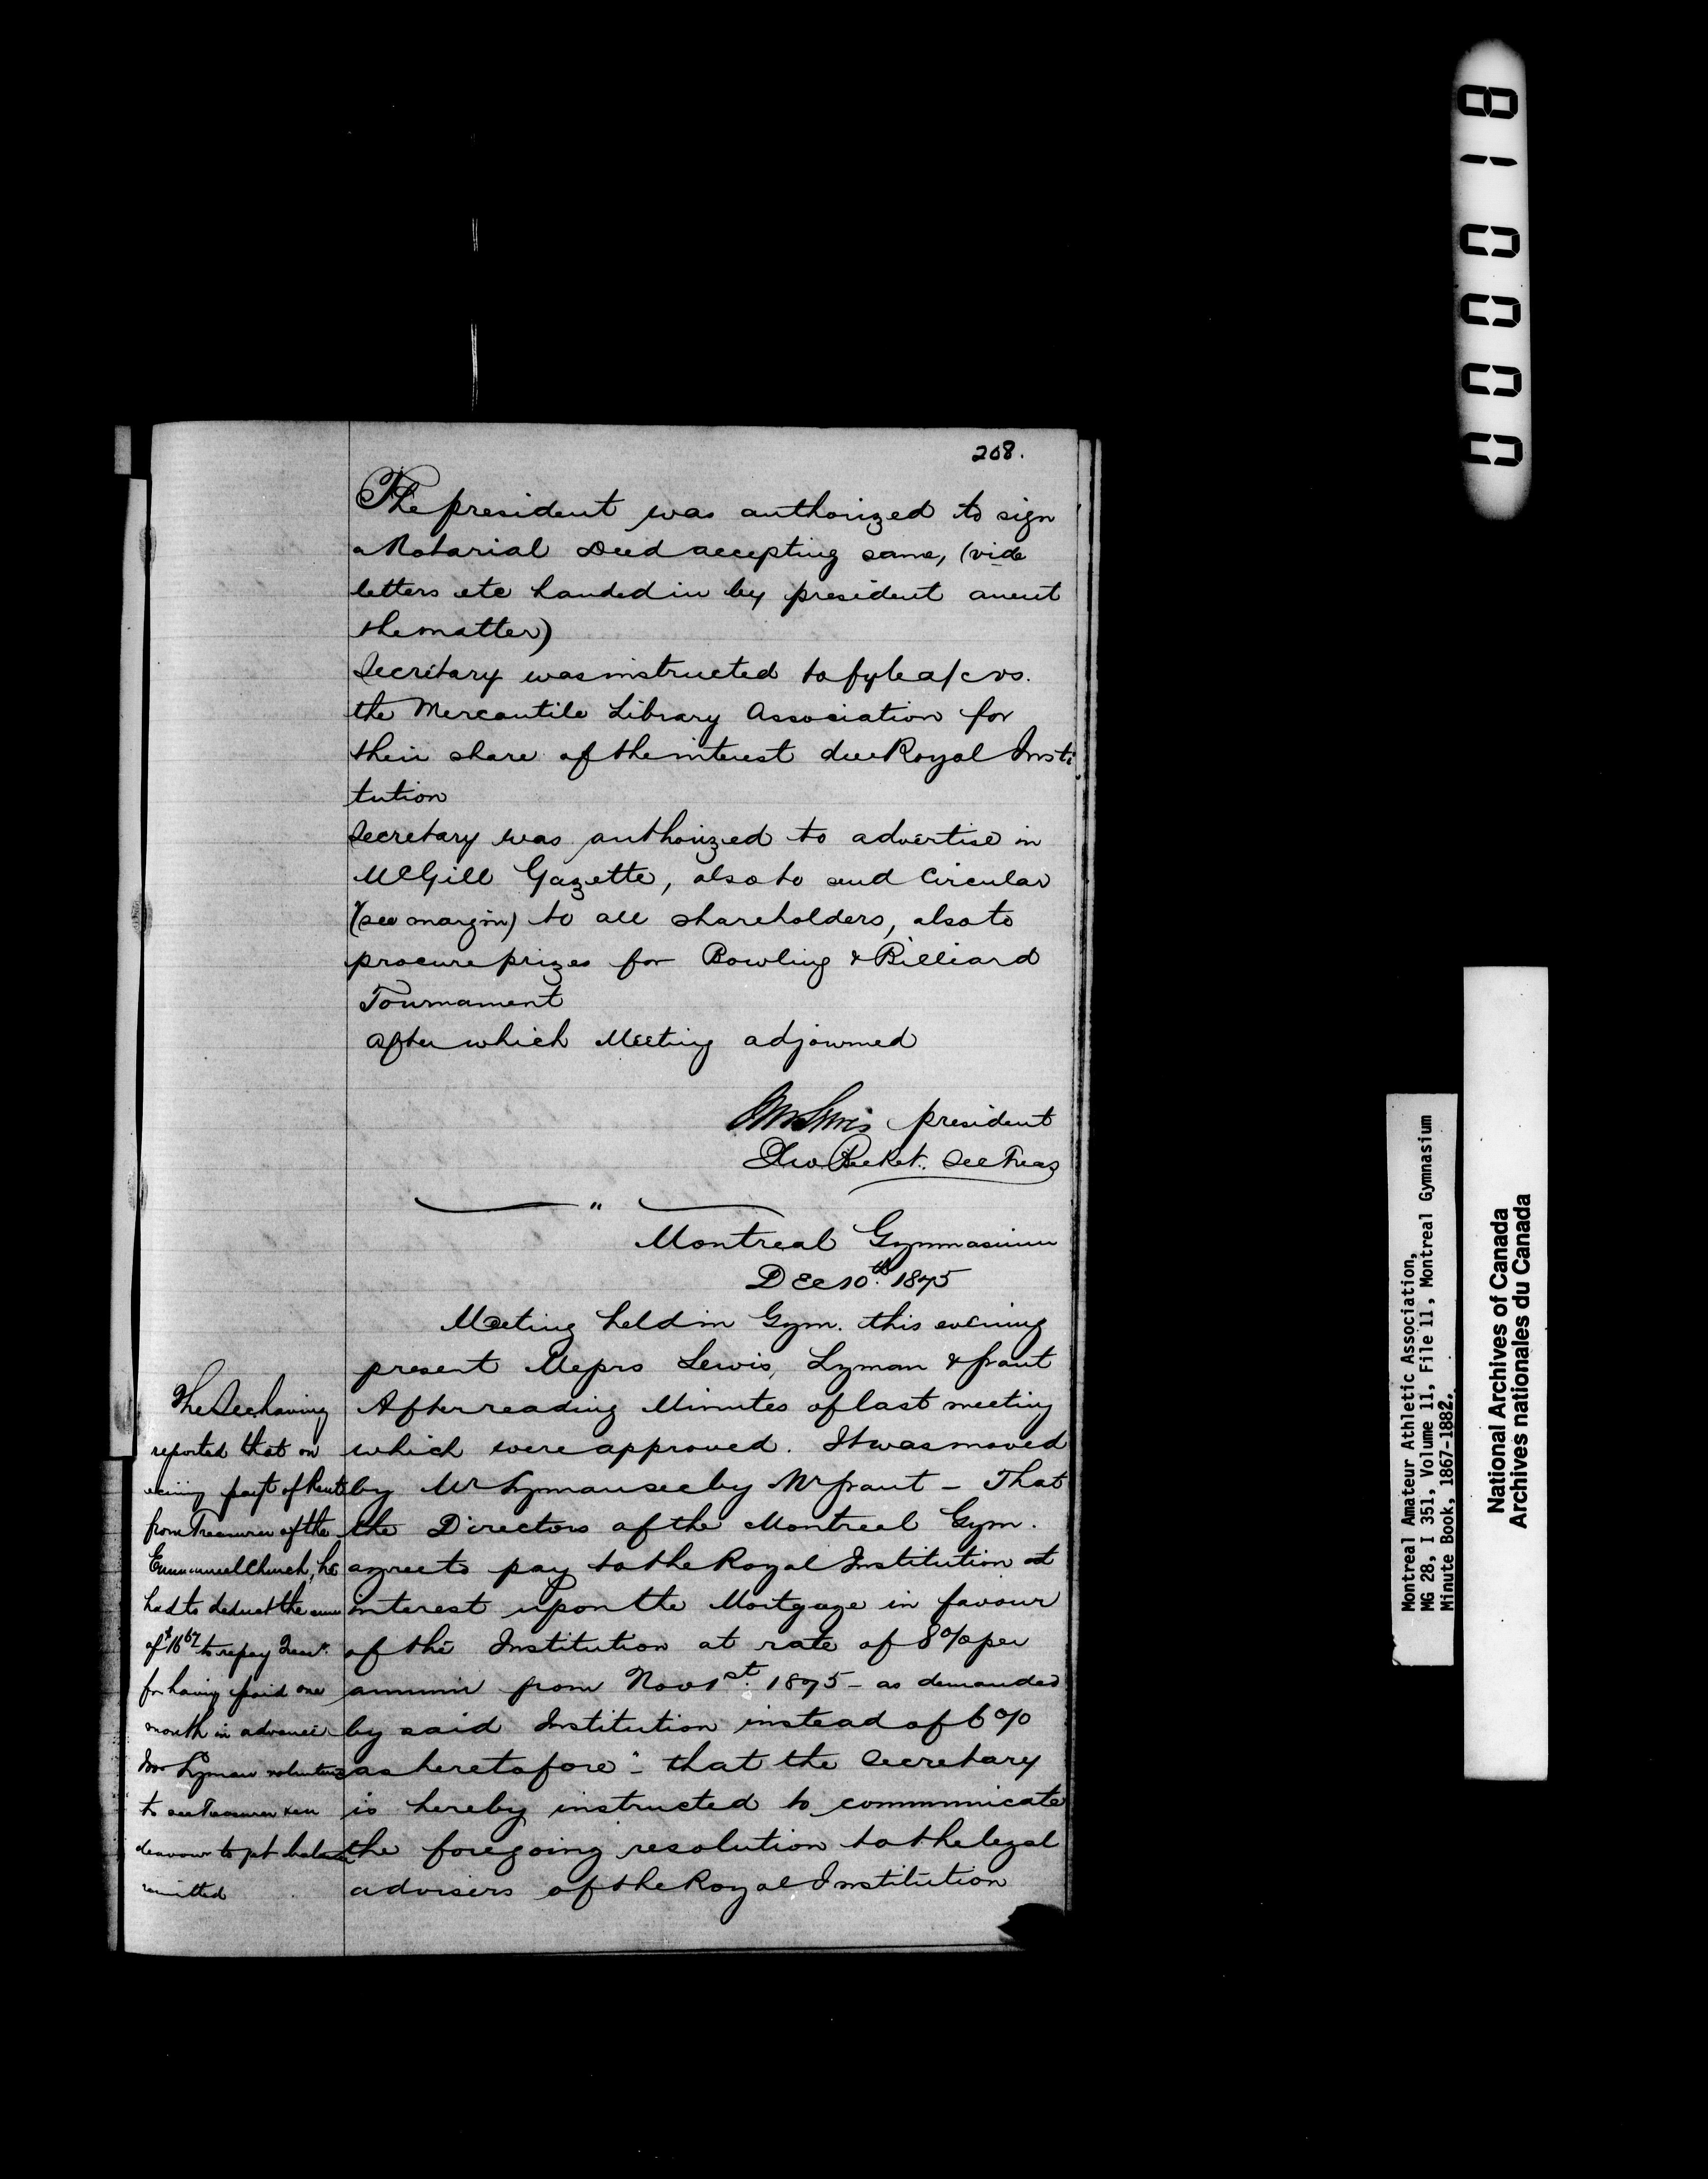 208.
The president was authorized to sign
a Notarial Deed accepting same, (vide
letters etc handed in by president anent
the matter)
Secretary was instructed to fyle a/c vs.
the Mercantile Library Association for
their share of the interest due Royal Insti
tution
Secretary was authorized to advertise in
McGill Gazette, also to send Circular
(see margin) to all shareholders, also to
procure prizes for Bowling & Billiard
Tournament
after which Meeting adjourned
president
Sec Treas
"
Montreal Gymnasium
Dec 10th. 1875
Meeting held in Gym. this evening
present Messrs Lewis, Lyman & Grant
After reading Minutes of last meeting
which were approved. It was moved
by Mr Lyman sec by Mr Grant - That
the Directors of the Montreal Gym.
agree to pay to the Royal Institution
interest upon the Mortgage in favour
of the Institution at rate of 8% per
annum from Nov 1st. 1875 - as demanded
by said Institution instead of 6%
as heretofore - that the Secretary
is hereby instructed to communicate
the foregoing resolution to the legal
advisers of the Royal Institution
The Sec having
reported that on
part of Rent
from Treasurer of the
Emmanuel Church, he
had to deduct the sum
of $16.67 to repay
for having paid one
month in advance
Mr Lyman
to see Treasurer & en
deavour to get balance
remitted
810000
Montreal Amateur Athletic Association,
MG 28, I 351, Volume 11, File 11, Montreal Gymnasium
Minute Book, 1867-1882.
National Archives of Canada
Archives nationales du Canada